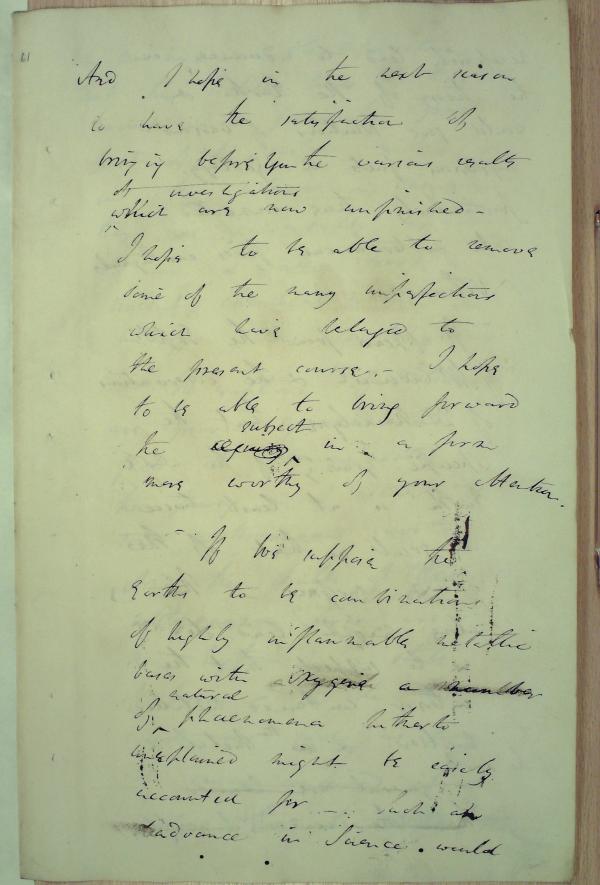 61
And I hope in the next season
to have the satisfaction of
bringing before You the various results
of investigations
which are now unfinished -
I hope to be able to remove
some of the many imperfections
which have belonged to
the present course. - I hope
to be able to bring forward
subject
the in a form
more worthy of your attention.
- If we suppose the
Earths to be combinations
of highly inflammable metallic
bases with oxygene a number
natural
of phaenomena hitherto
unexplained might be easily
accounted for - Such an
advance in Science would